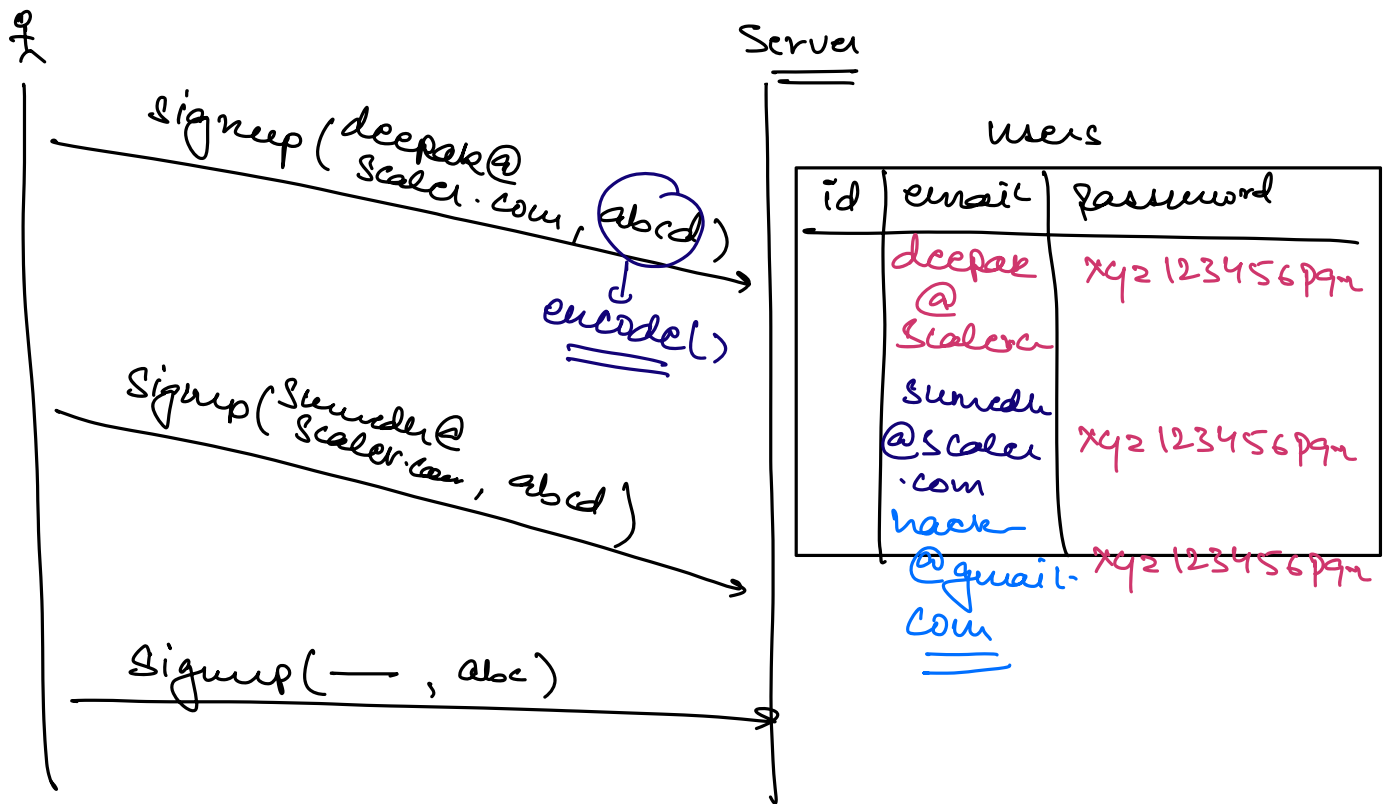 Server
signup ( deepak@
scaler.com, abcd )
encode()
Signup ( Sumedh@
Scaler.com, abcd )
Signup ( — , abc )
users
id email password
deepak xyz123456pqr
@
Scaler
sumedh
@scaler xyz123456pqr
.com
hack
@gmail. xyz123456pqr
com